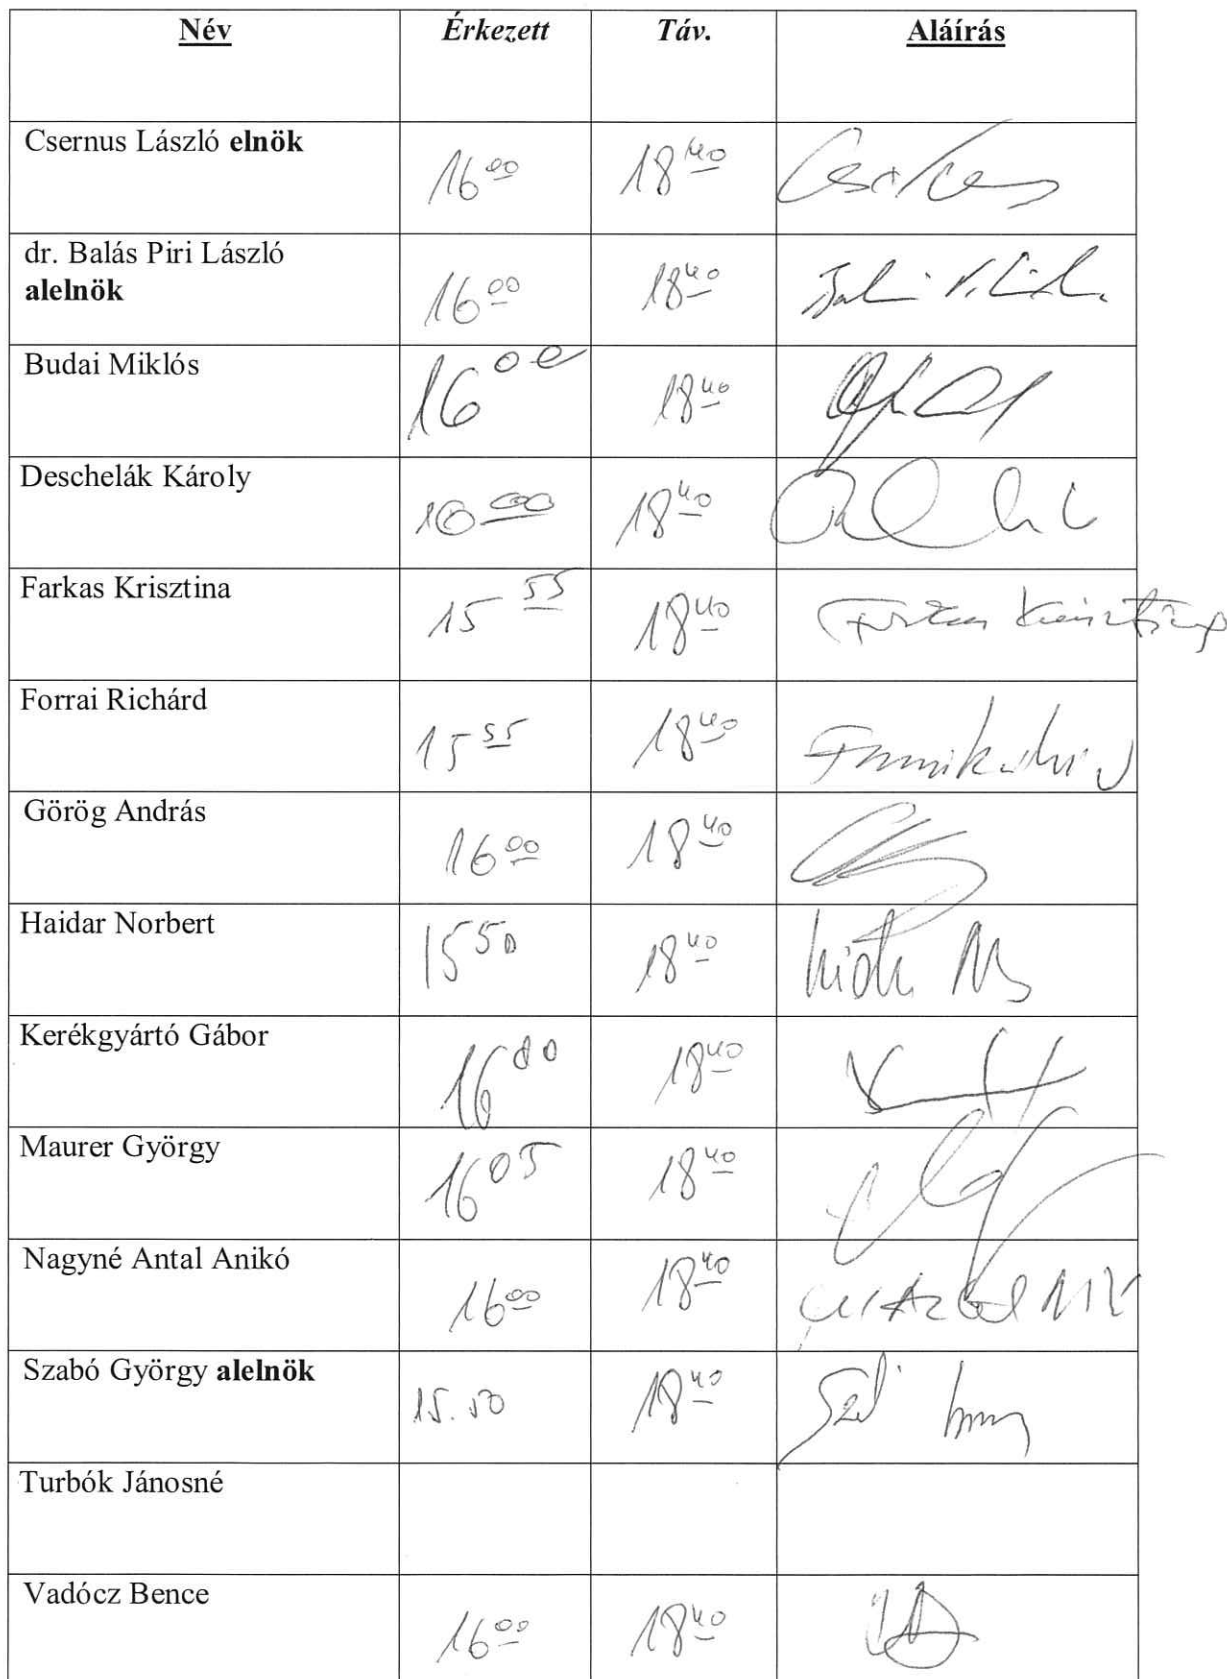 Név Érkezett Táv. Aláírás
Csernus László elnök 16 00 18 40
dr. Balás Piri László
alelnök 16 00 18 40
Budai Miklós 16 00 18 40
Deschelák Károly 16 00 18 40
Farkas Krisztina 15 55 18 40 Farkas Krisztina
Forrai Richárd 15 55 18 40
Görög András 16 00 18 40
Haidar Norbert 15 50 18 40
Kerékgyártó Gábor 16 00 18 40
Maurer György 16 05 18 40
Nagyné Antal Anikó 16 00 18 40
Szabó György alelnök 15.50 18 40
Turbók Jánosné
Vadócz Bence 16 00 18 40